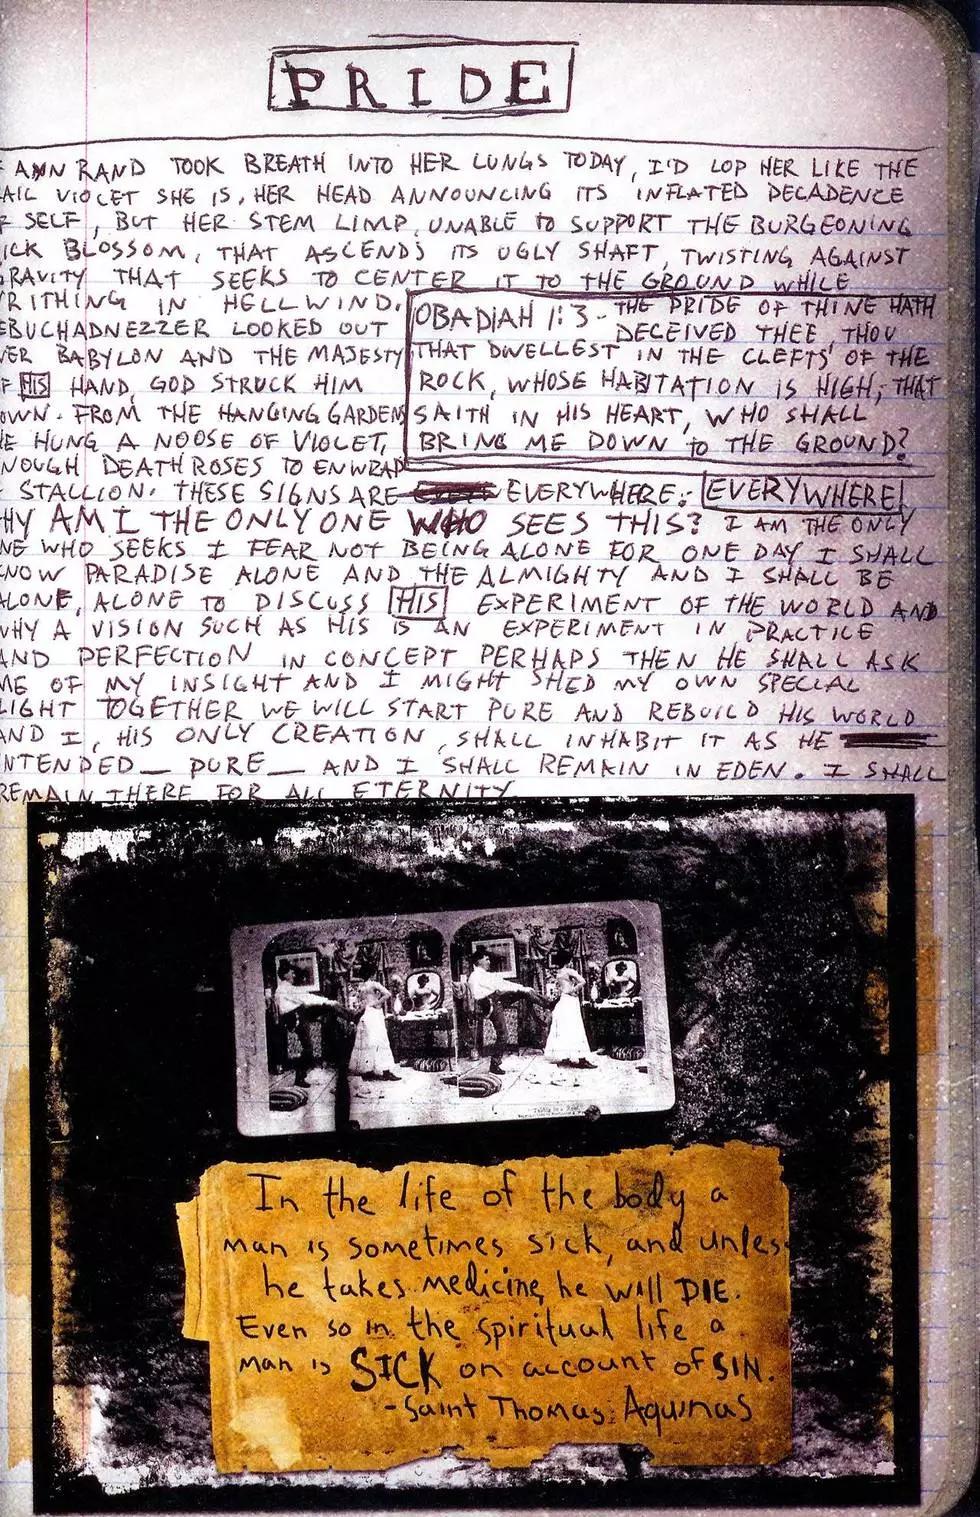 PRIDE
AYN RAND TOOK BREATH INTO HER LUNGS TODAY, I'D LOP HER LIKE THE
AIL VIOLET SHE IS, HER HEAD ANNOUNCING ITS INFLATED DECADENCE
F SELF, BUT HER STEM LIMP, UNABLE to SUPPORT THE BURGEONING
ICK BLOSSOM, THAT ASCENDS ITS UGLY SHAFT, TWISTING AGAINST
RAVITY THAT SEEKS TO CENTER IT TO THE GROUND WHILE
RITHING IN HELLWIND.
EBUCHADNEZZER LOOKED OUT
VER BABYLON AND THE MAJESTY
F HIS HAND, GOD STRUCK HIM
OWN. FROM THE HANGING GARDENS
HE HUNG A NOOSE OF VIOLET,
NOUGH DEATH ROSES TO ENWRAP
OBADIAH 1:3 - THE PRIDE OF THINE HATH
DECEIVED THEE, THOU
THAT DWELLEST IN THE CLEFTS OF THE
ROCK, WHOSE HABITATION IS HIGH; THAT
SAITH IN HIS HEART, WHO SHALL
BRING ME DOWN to THE GROUND?
STALLION. THESE SIGNS ARE EVERYWHERE. EVERYWHERE!
HY AM I THE ONLY ONE WHO SEES THIS? I AM THE ONLY
NE WHO SEEKS I FEAR NOT BEING ALONE FOR ONE DAY I SHALL
KNOW PARADISE ALONE AND THE ALMIGHTY AND I SHALL BE
ALONE, ALONE TO DISCUSS HIS EXPERIMENT OF THE WORLD AND
WHY A VISION SUCH AS HIS IS AN EXPERIMENT IN PRACTICE
AND PERFECTION IN CONCEPT PERHAPS THEN HE SHALL ASK
ME OF MY INSIGHT AND I MIGHT SHED MY OWN SPECIAL
LIGHT TOGETHER WE WILL START PURE AND REBUILD HIS WORLD
AND I, HIS ONLY CREATION, SHALL INHABIT IT AS HE
NTENDED — PURE — AND I SHALL REMAIN IN EDEN. I SHALL
REMAIN THERE FOR ALL ETERNITY
In the life of the body a
man is sometimes sick, and unles
he takes medicine, he will DIE.
Even so in the spiritual life a
man is SICK on account of SIN.
-Saint Thomas Aquinas